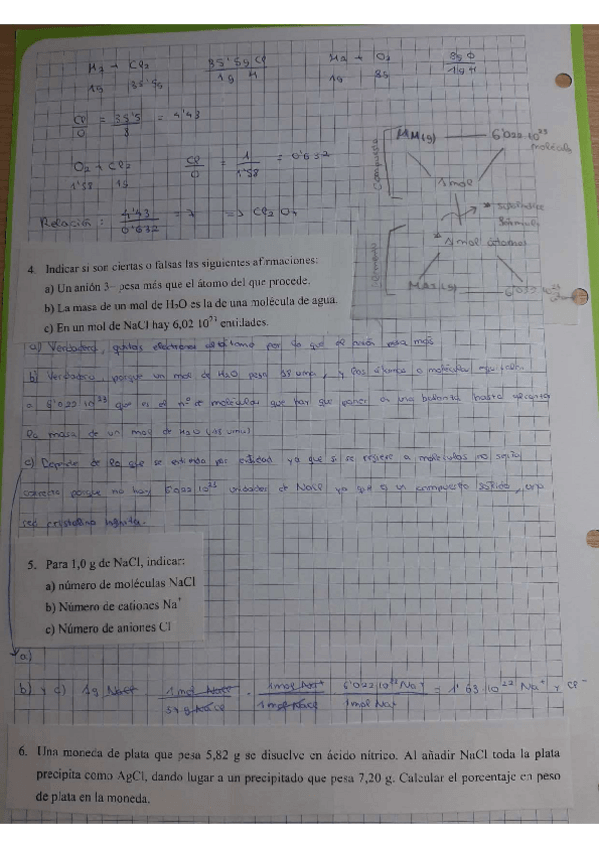 H₂ + Cl₂ 35'5g Cl / 1g H H₂ + O₂ 8g O / 1g H
1g 35'5g 1g 8g
Cl/O = 35'5/8 = 4'43
O₂ + Cl₂ Cl/O = 1/1'58 = 0'632
1'58 1g
Relación: 4'43/0'632 = 7 => Cl₂O₇
MM(g) 6'022·10²³
1 mol
1 mol átomos
4. Indicar si son ciertas o falsas las siguientes afirmaciones:
a) Un anión 3- pesa más que el átomo del que procede.
b) La masa de un mol de H₂O es la de una molécula de agua.
c) En un mol de NaCl hay 6,02 10²³ entidades.
a) Verdadera, electrones el átomo por lo que el anión pesa más
b) Verdadera, porque un mol de H₂O pesa 18 uma, y los átomos o moléculas
6'022·10²³ que es el nº de moléculas que hay que poner en una balanza hasta
la masa de un mol de H₂O (18 uma)
c) Depende de lo que se entienda por entidad ya que si se refiere a moléculas no sería
correcto porque no hay 6'022·10²³ unidades de NaCl ya que es un compuesto sólido, una
red cristalina infinita.
5. Para 1,0 g de NaCl, indicar:
a) número de moléculas NaCl
b) Número de cationes Na⁺
c) Número de aniones Cl
a)
b) y c) 1g NaCl 1 mol NaCl / g NaCl · 1 mol Na⁺ / 1 mol NaCl 6'022·10²³ Na⁺ / 1 mol Na⁺ = 1'63·10²² Na⁺ y Cl⁻
6. Una moneda de plata que pesa 5,82 g se disuelve en ácido nítrico. Al añadir NaCl toda la plata
precipita como AgCl, dando lugar a un precipitado que pesa 7,20 g. Calcular el porcentaje en peso
de plata en la moneda.